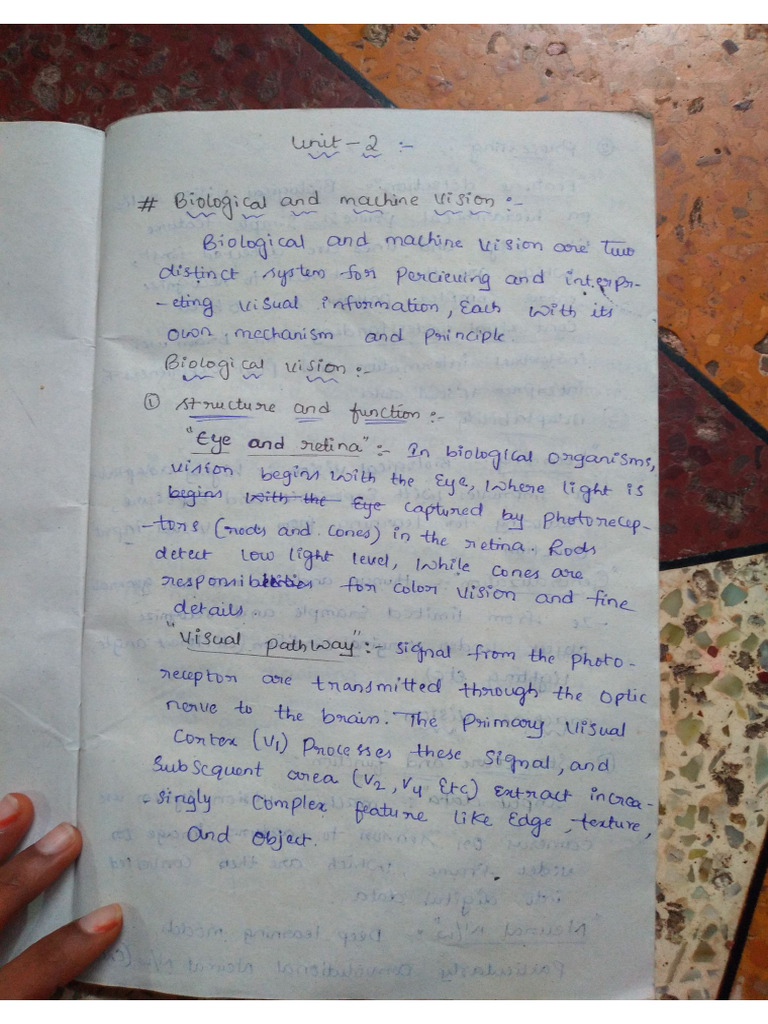 Unit - 2 :-
# Biological and machine vision :-
Biological and machine vision are Two
distinct system for percieving and interpr-
-eting visual information, Each with its
own mechanism and principle.
Biological vision :-
① structure and function :-
"Eye and retina" :- In biological organisms,
vision begins with the Eye, where light is
begins with the Eye captured by photorecep-
-tors (rods and cones) in the retina. Rods
detect low light level, while cones are
responsibilities for color vision and fine
details.
"Visual pathway" :- signal from the photo-
receptor are transmitted through the optic
nerve to the brain. The primary visual
Cortex (V1) Processes these signal, and
Subsequent area (V2, V4 Etc) Extract increa-
-singly complex feature like Edge, texture,
and object.